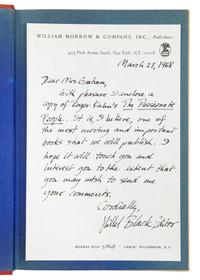 WILLIAM MORROW & COMPANY, INC., Publishers
425 Park Avenue South, New York, N.Y. 10016
March 28, 1968
Dear Mrs. Graham,
With pleasure I enclose a
copy of Roger Kahn's The Passionate
People. It is, I believe, one of
the most moving and important
books that we will publish. I
hope it will touch you and
interest you to the extent that
you may wish to send me
your comments.
Cordially,
Hillel Black, Editor
MURRAY HILL CABLE: WILMORROW, N.Y.